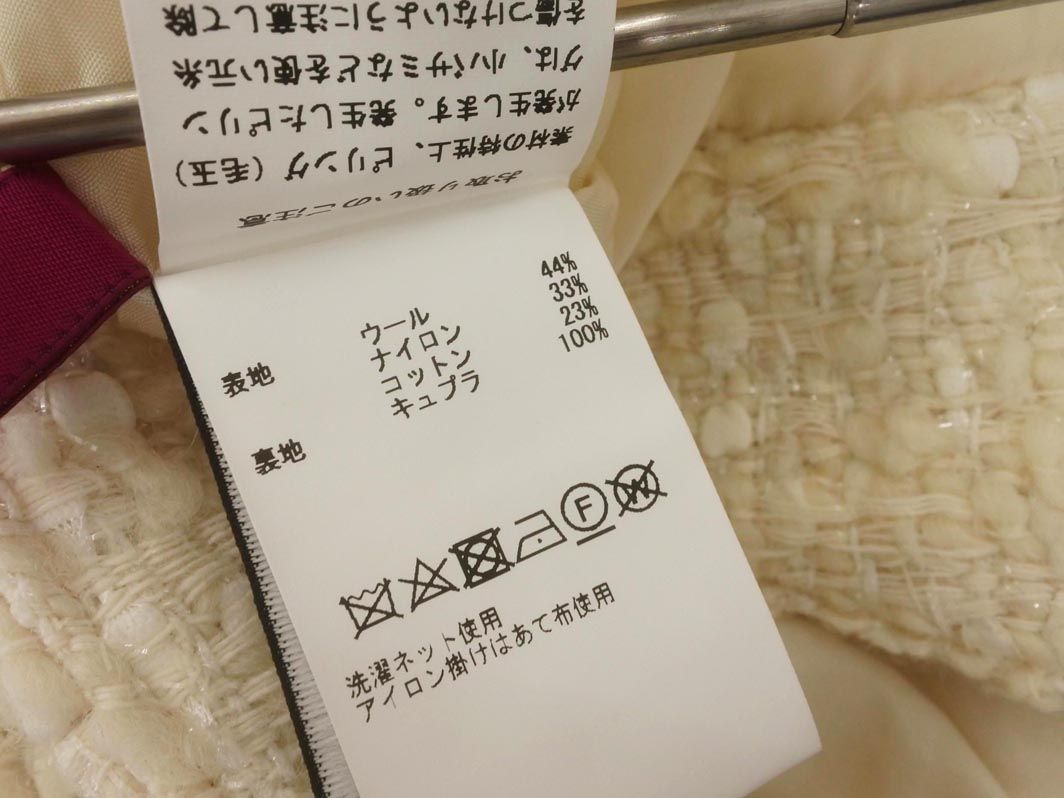 お取り扱いのご注意
素材の特性上、ピリング（毛玉）
が発生します。発生したピリン
グは、小バサミなどを使い元糸
を傷つけないように注意して除
表地 ウール 44%
ナイロン 33%
コットン 23%
裏地 キュプラ 100%
F W
洗濯ネット使用
アイロン掛けはあて布使用